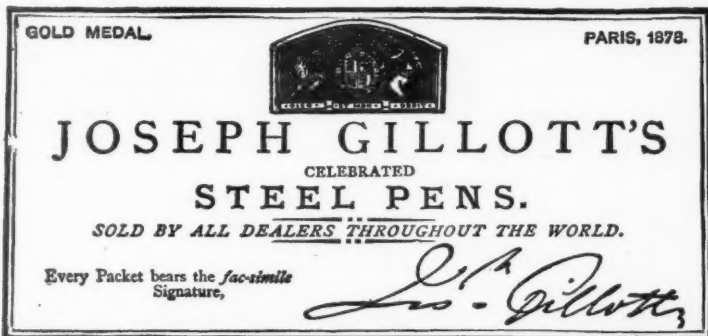 GOLD MEDAL,
PARIS, 1878.
JOSEPH GILLOTT'S
CELEBRATED
STEEL PENS.
SOLD BY ALL DEALERS THROUGHOUT THE WORLD.
Every Packet bears the fac-simile
Signature,
Jos.h Gillott